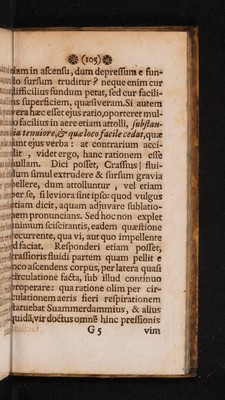 (105)
etiam in ascensu, dum depressum e fun-
do sursum truditur? neque enim cur
difficilius fundum petat, sed cur facili-
us superficiem, quæsiveram. Si autem
vera hæc esset ejus ratio, oporteret mul-
to facilius in aere etiam attolli, substan-
via tenuiore, & quæ loco facile cedat, quæ
sunt ejus verba: at contrarium acci-
dit, videt ergo, hanc rationem esse
nullam. Dici posset, Crassius flui-
dum simul extrudere & sursum gravia
pellere, dum attolluntur, vel etiam
per se, si leviora sint ipso: quod vulgus
etiam dicit, aquam adjuvare sublatio-
nem pronuncians. Sed hoc non explet
animum sciscitantis, eadem quæstione
recurrente, qua vi, aut quo impellente
id faciat. Responderi etiam posset,
crassioris fluidi partem quam pellit e
loco ascendens corpus, per latera quasi
circulatione facta, sub illud continuo
properare: qua ratione olim per cir-
culationem aeris fieri respirationem
statuebat Suammerdammius, & alius
quidã, vir doctus omnẽ hinc pressionis
G 5 vim